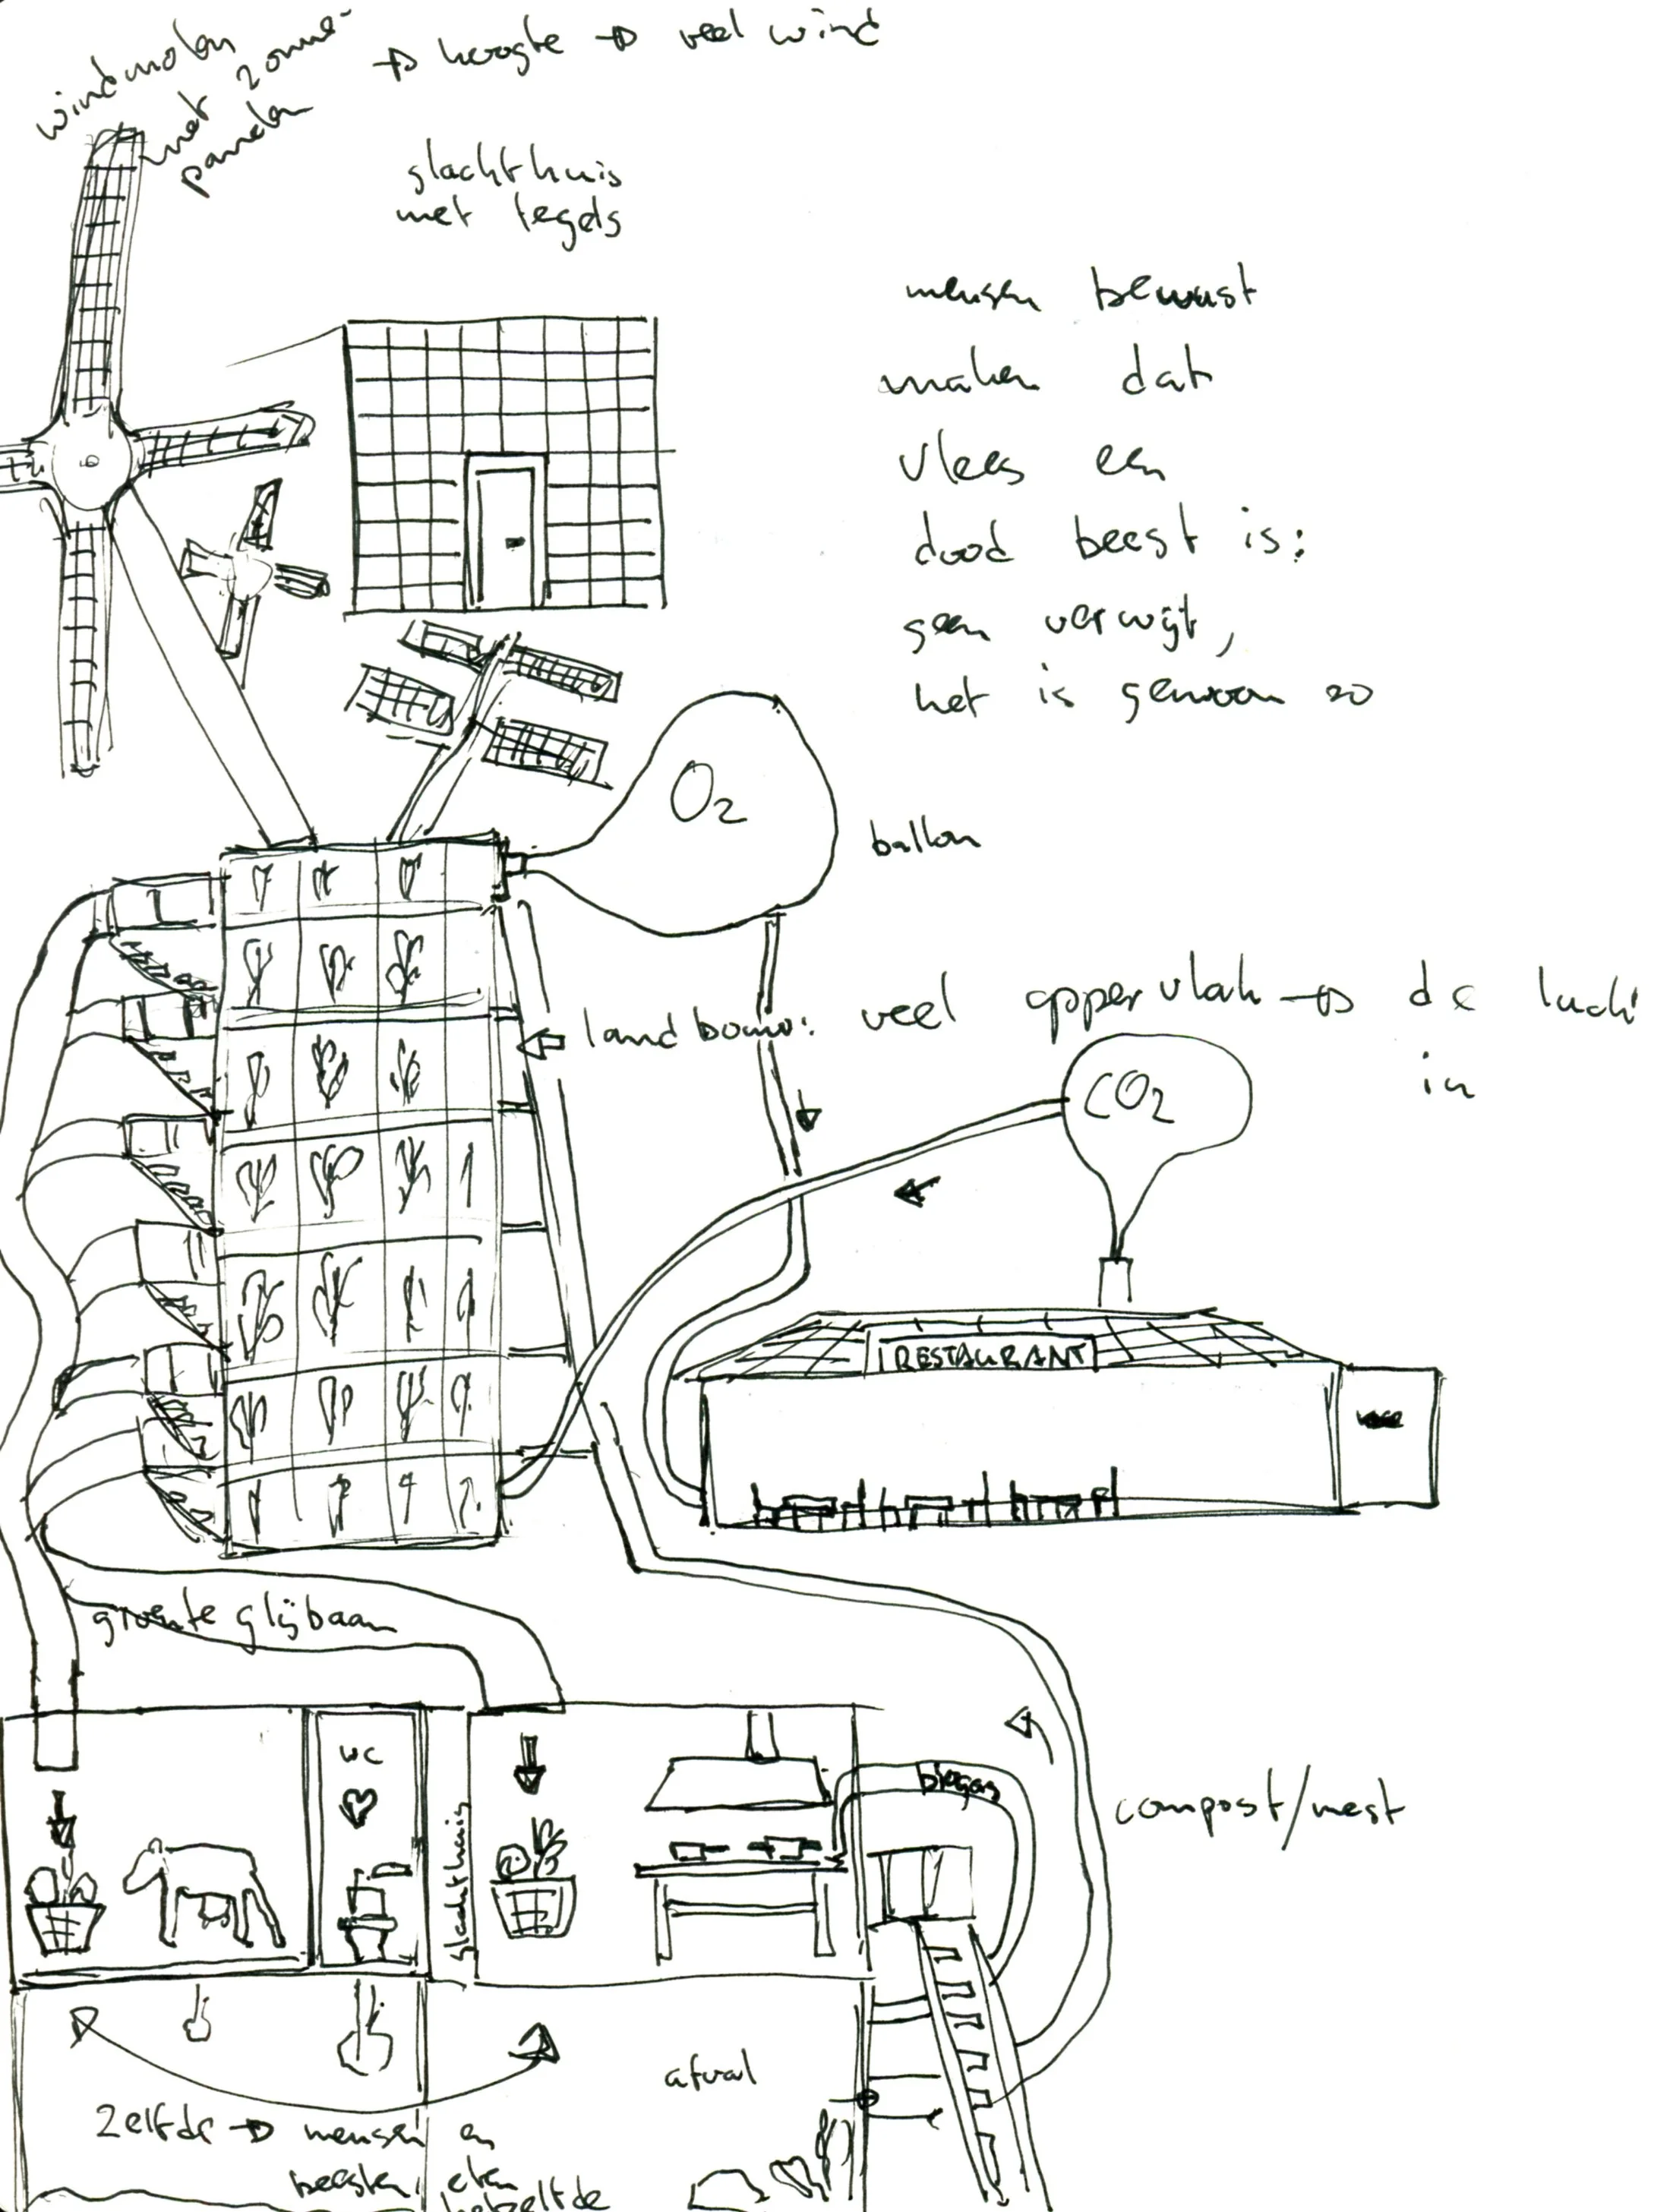 windmolen
met zonne-
panelen
→ hoogte → veel wind
slachthuis
met tegels
mensen bewust
maken dat
vlees een
dood beest is:
geen verwijt,
het is gewoon zo
O2
ballon
landbouw: veel oppervlak → de lucht
in
CO2
RESTAURANT
groente glijbaan
wc
slachthuis
biogas
compost/mest
afval
Zelfde → mensen en
beesten eten
hetzelfde